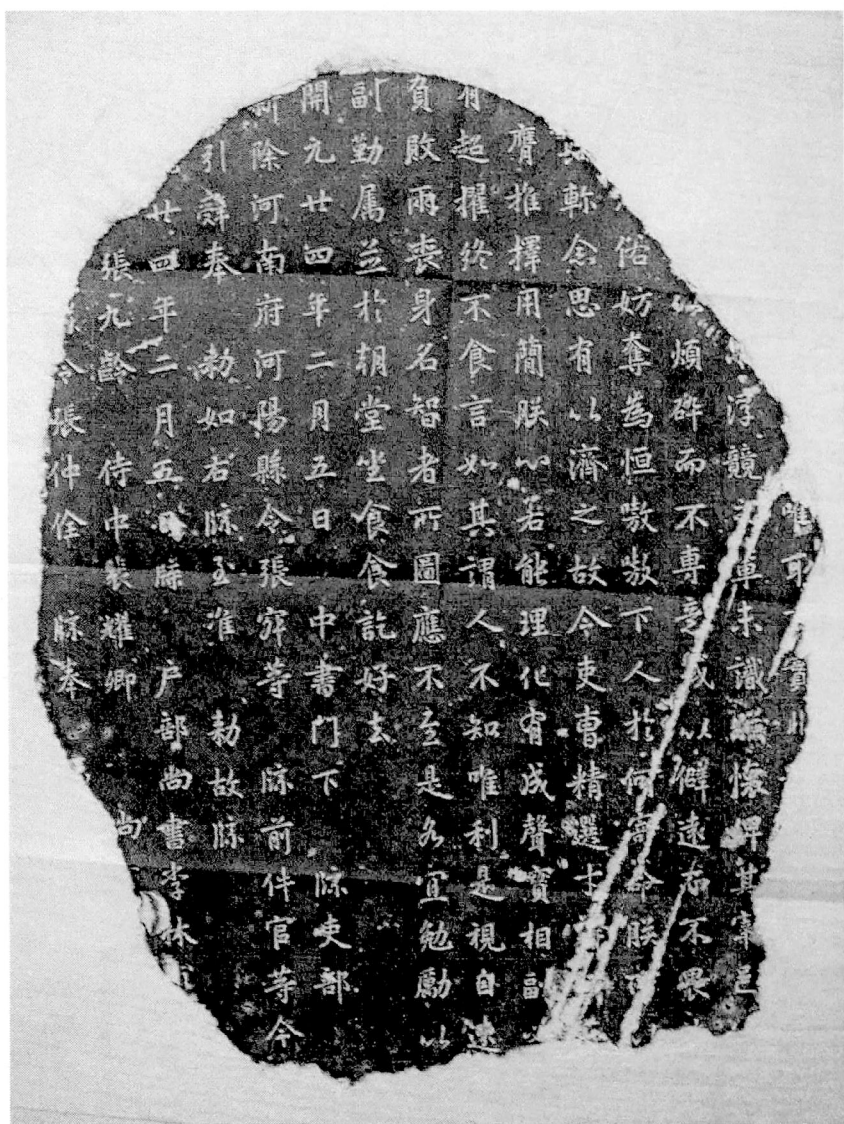 唯取實
浮競車未識緬懷俾其宰邑
煩碎而不專意或以僻遠而不畏
俗妨奪為恒嗷嗷下人於何寄命朕
軫念思有以濟之故令吏曹精選士
膺推擇用簡朕心若能理化有成聲實相副
有超擢終不食言如其謂人不知唯利是視自速
負敗兩喪身名智者所圖應不至是各宜勉勵以
副勤属並於朝堂坐食食訖好去
開元廿四年二月五日 中書門下 牒吏部
新除河南府河陽縣令張等 牒前件官等今
引辭奉 勅如右牒至准 勅故牒
廿四年二月五日牒 户部尚書李林
張九齡 侍中裴耀卿 尚
令張仲佺 牒奉